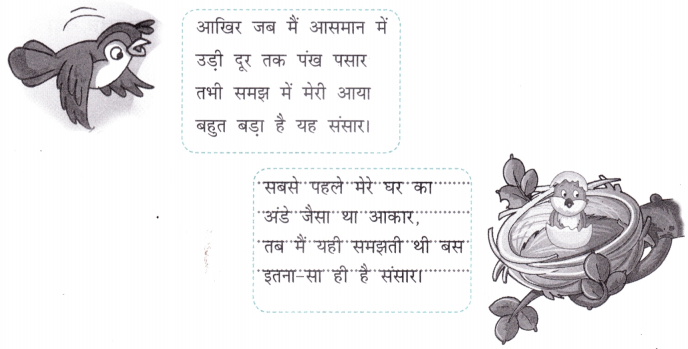 आखिर जब मैं आसमान में
उड़ी दूर तक पंख पसार
तभी समझ में मेरी आया
बहुत बड़ा है यह संसार।
सबसे पहले मेरे घर का
अंडे जैसा था आकार,
तब मैं यही समझती थी बस
इतना-सा ही है संसार।